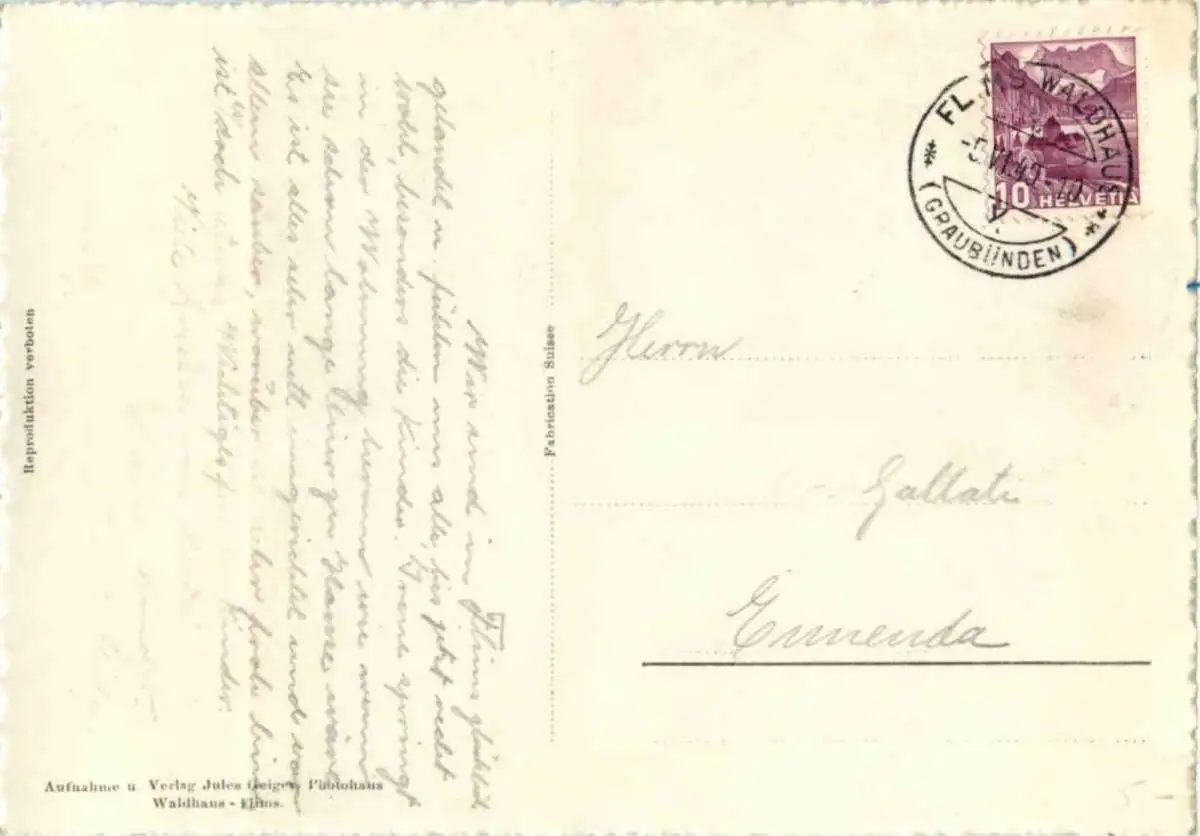 Wir sind in Flims glücklich
gelandet u. fühlen uns alle, bis jetzt recht
wohl, besonders die Kinder. Irene springt
in der Wohnung herum wie wenn
sie schon lange hier zu Hause wäre
Es ist alles sehr nett eingerichtet und vor
allem sauber, worüber ich sehr froh bin
ist doch Kinder.
Viele
Reproduktion verboten
Aufnahme u Verlag Jules Geiger, Photohaus
Waldhaus - Flims.
Fabrication Suisse
FLIMS WALDHAUS
-5.VI.40-10
(GRAUBÜNDEN)
10 HELVETIA
Herrn
Gallati
Ennenda
5-